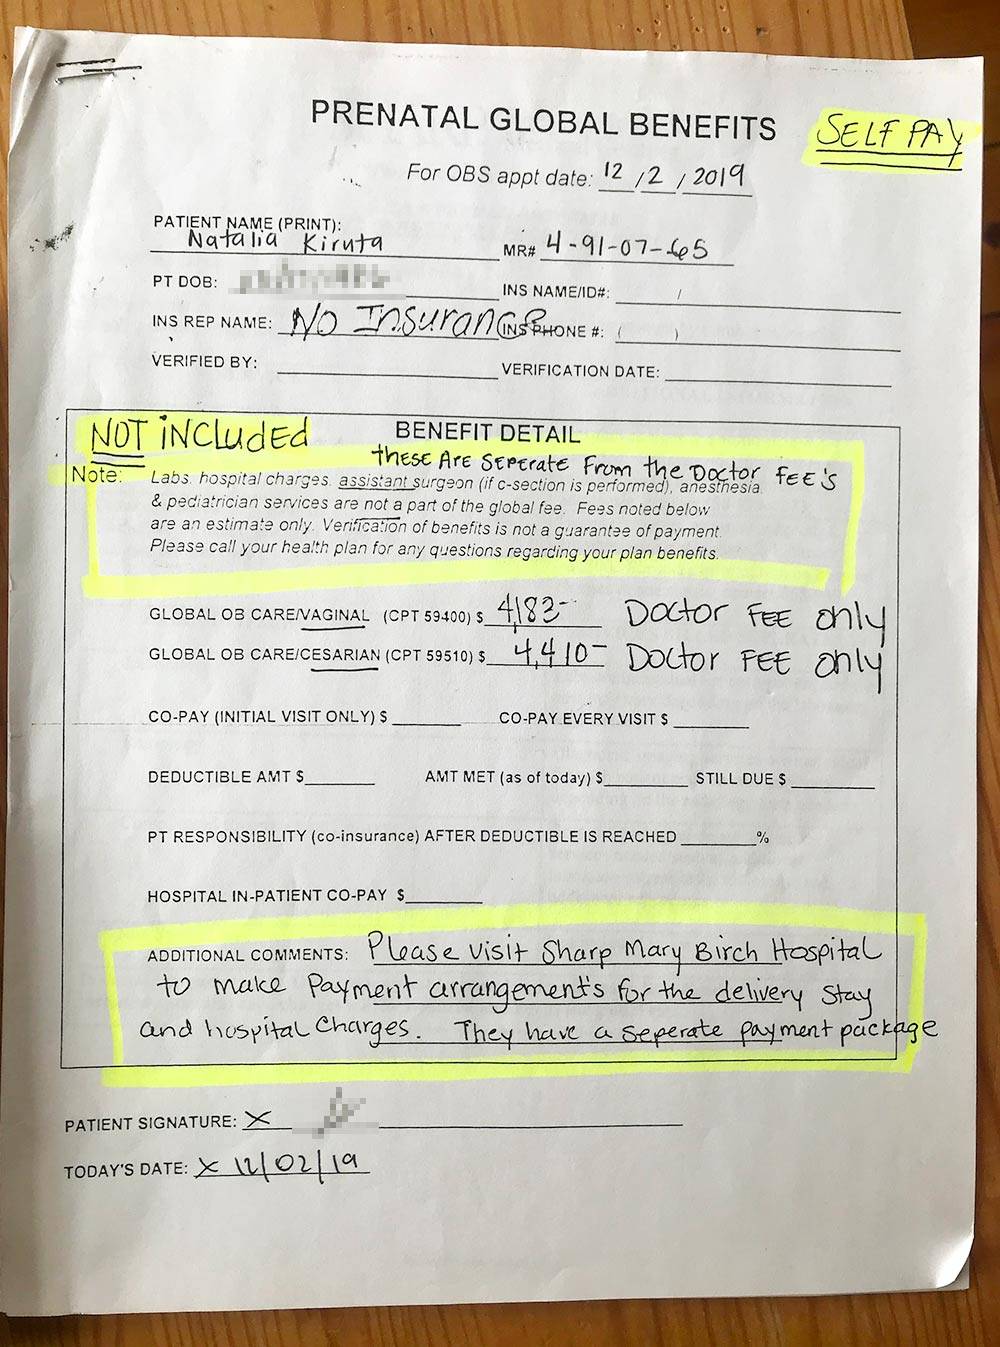 PRENATAL GLOBAL BENEFITS
SELF PAY
For OBS appt date: 12 / 2 / 2019
PATIENT NAME (PRINT):
Natalia Kiruta
MR# 4-91-07-65
PT DOB:
INS NAME/ID#: /
INS REP NAME: No Insurance INS PHONE #: ( )
VERIFIED BY:
VERIFICATION DATE:
NOT iNCLUdEd
BENEFIT DETAIL
THESE ARE SEPERATE From the Doctor FEE's
Note: Labs, hospital charges, assistant surgeon (if c-section is performed), anesthesia
& pediatrician services are not a part of the global fee. Fees noted below
are an estimate only. Verification of benefits is not a guarantee of payment.
Please call your health plan for any questions regarding your plan benefits.
GLOBAL OB CARE/VAGINAL (CPT 59400) $ 4,183- Doctor FEE only
GLOBAL OB CARE/CESARIAN (CPT 59510) $ 4,410- Doctor FEE only
CO-PAY (INITIAL VISIT ONLY) $ CO-PAY EVERY VISIT $
DEDUCTIBLE AMT $ AMT MET (as of today) $ STILL DUE $
PT RESPONSIBILITY (co-insurance) AFTER DEDUCTIBLE IS REACHED %
HOSPITAL IN-PATIENT CO-PAY $
ADDITIONAL COMMENTS: Please visit Sharp Mary Birch Hospital
to make Payment arrangements for the delivery stay
and hospital Charges. They have a seperate payment package
PATIENT SIGNATURE: X
TODAY'S DATE: X 12/02/19